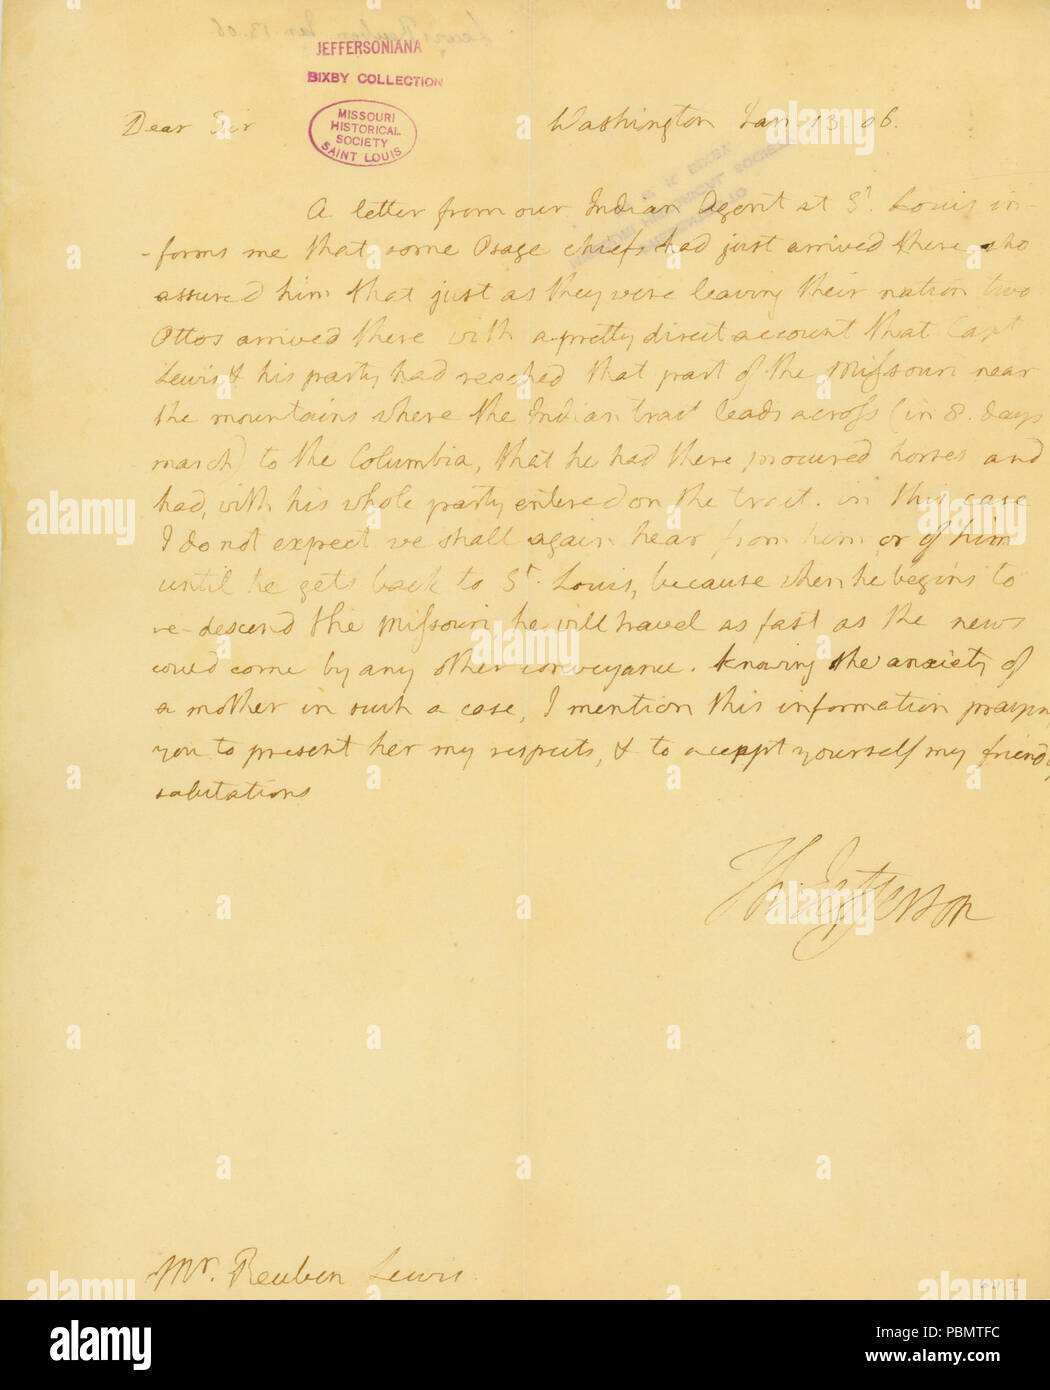 Lewis Reuben Jan. 13. 06
JEFFERSONIANA
BIXBY COLLECTION
MISSOURI
HISTORICAL
SOCIETY
SAINT LOUIS
Dear Sir Washington Jan. 13. 06.
A letter from our Indian Agent at St. Louis in-
-forms me that some Osage chiefs had just arrived there who
assured him that just as they were leaving their nation two
Ottos arrived there with a pretty direct account that Capt
Lewis & his party had reached that part of the Missouri near
the mountains where the Indian tract leads across (in 8. days
march) to the Columbia, that he had there procured horses and
had, with his whole party entered on the tract. in this case
I do not expect we shall again hear from him or of him
until he gets back to St. Louis, because when he begins to
re-descend the Missouri he will travel as fast as the news
could come by any other conveyance. knowing the anxiety of
a mother in such a case, I mention this information praying
you to present her my respects, & to accept yourself my friendly
salutations
Th: Jefferson
Mr. Reuben Lewis
alamy
Image ID: PBMTFC
www.alamy.com